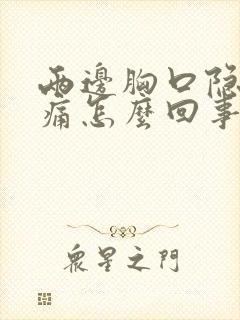 兩邊胸口隐
痛怎麽回事
衆星之門